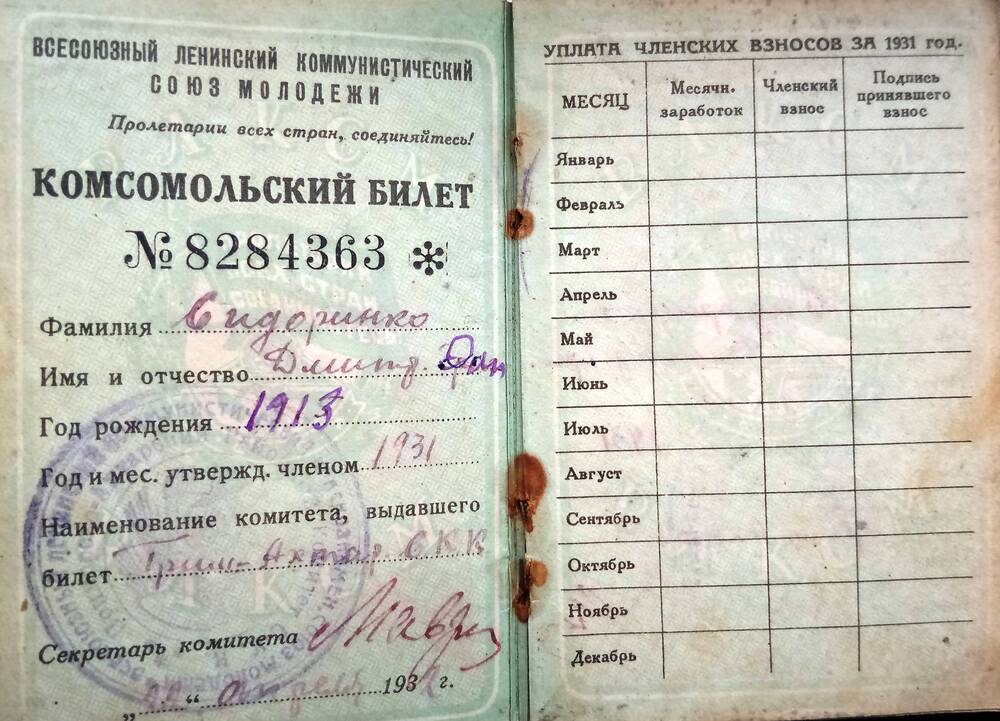 ВСЕСОЮЗНЫЙ ЛЕНИНСКИЙ КОММУНИСТИЧЕСКИЙ
СОЮЗ МОЛОДЕЖИ
Пролетарии всех стран, соединяйтесь!
КОМСОМОЛЬСКИЙ БИЛЕТ
№ 8284363
Фамилия Сидоринко
Имя и отчество Дмитр.
Год рождения 1913
Год и мес. утвержд. членом 1931
Наименование комитета, выдавшего
билет Прим-Ахтар. СКК
Секретарь комитета
„ “ апреля 193 г.
УПЛАТА ЧЛЕНСКИХ ВЗНОСОВ ЗА 1931 год.
МЕСЯЦ Месячн. заработок Членский взнос Подпись принявшего взнос
Январь
Февраль
Март
Апрель
Май
Июнь
Июль
Август
Сентябрь
Октябрь
Ноябрь
Декабрь